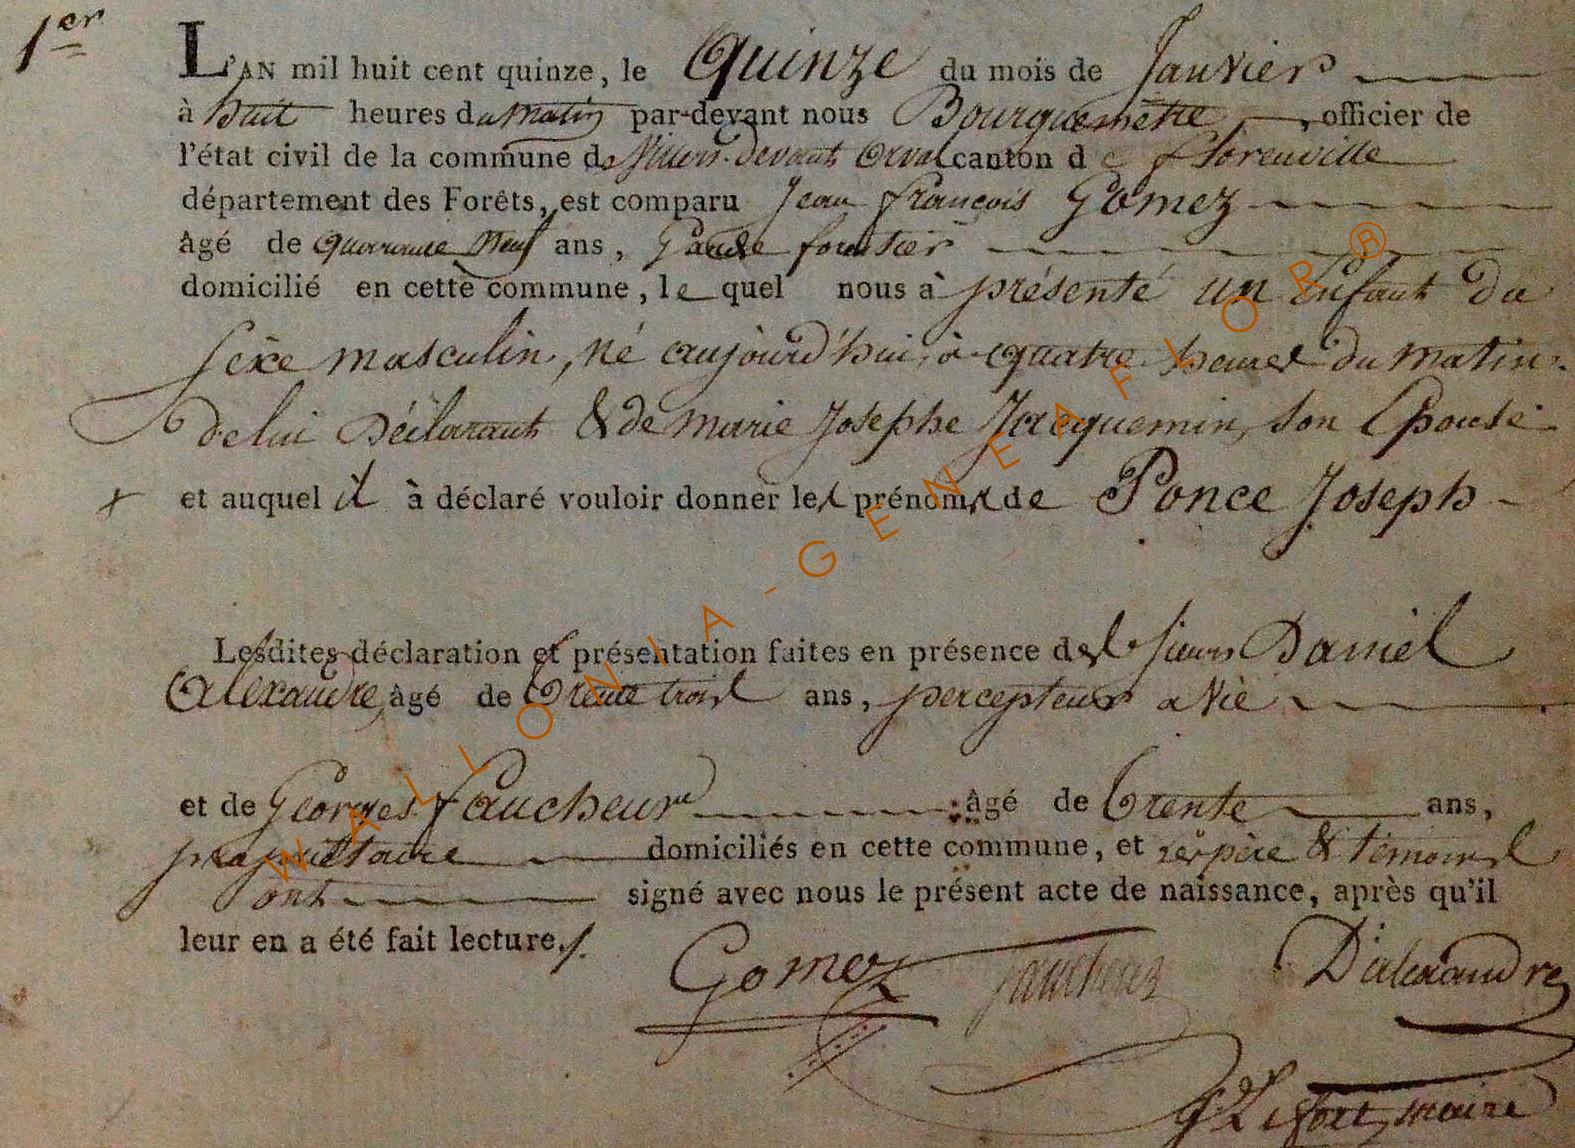 1er
L'AN mil huit cent quinze, le Quinze du mois de Janvier
à huit heures du matin par-devant nous Bourguemêtre, officier de
l'état civil de la commune de Villers-devant Orval canton de florenville
département des Forêts, est comparu Jean françois Gomez
âgé de quarante Neuf ans, Garde forestier
domicilié en cette commune, le quel nous à présenté un Enfant du
sexe masculin, né aujourd'hui, à quatre heures du matin.
de lui Déclarant & de marie Josephe Jacquemin, son Epouse
+ et auquel il à déclaré vouloir donner les prénoms de Ponce Joseph
Lesdites déclaration et présentation faites en présence des sieurs Daniel
Alexandre, âgé de trente trois ans, percepteur a Vie
et de Georges faucheur âgé de trente ans,
propriétaire domiciliés en cette commune, et père & témoins
ont signé avec nous le présent acte de naissance, après qu'il
leur en a été fait lecture./.
Gomez faucheur D'alexandre
Lefort, maire
WALLONIA-GENEAFLOR®